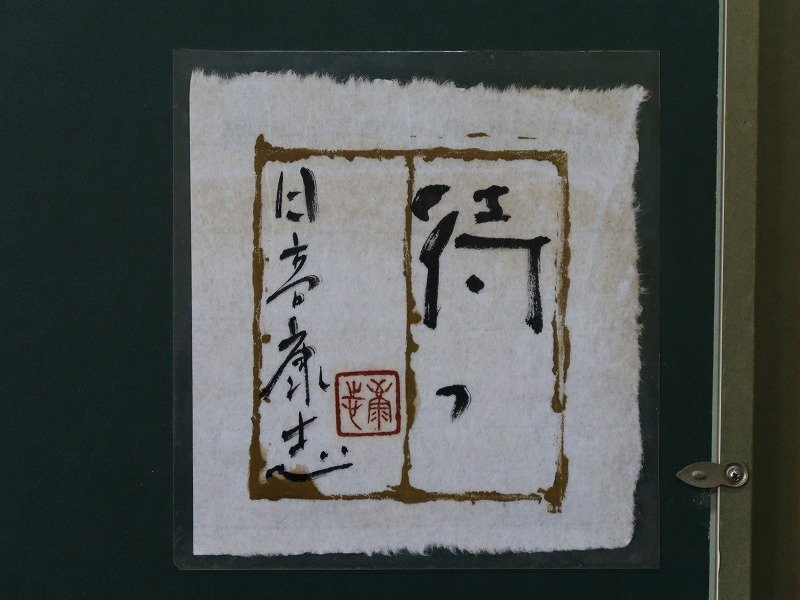 待つ
日高康志
康志